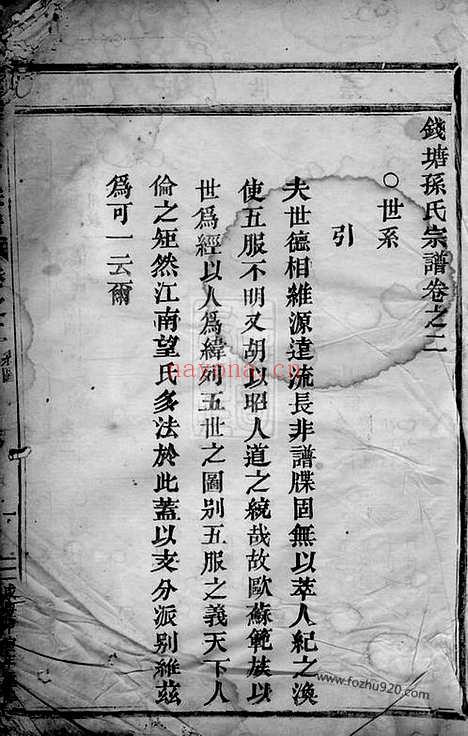 錢塘孫氏宗譜卷之二
○世系
引
夫世德相維源遠流長非譜牒固無以萃人紀之渙
使五服不明又胡以昭人道之統哉故歐蘇範族以
世爲經以人爲緯列五世之圖別五服之義天下人
倫之矩然江南望氏多法於此蓋以支分派別維茲
爲可一云爾
nayona.cn
www.fozhu920.com